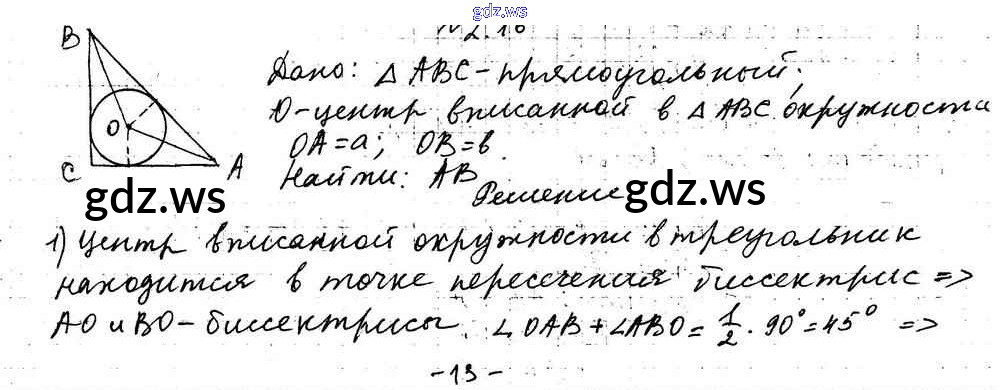 gdz.ws
№2.16
B
Дано: △ ABC - прямоугольный;
O-центр вписанной в △ ABC окружности
O
OA=a; OB=b.
C A
Найти: AB
gdz.ws Решение gdz.ws
1) Центр вписанной окружности в треугольник
находится в точке пересечения биссектрис =>
AO и BO - биссектрисы. ∠OAB + ∠ABO = 1/2 · 90° = 45° =>
- 13 -